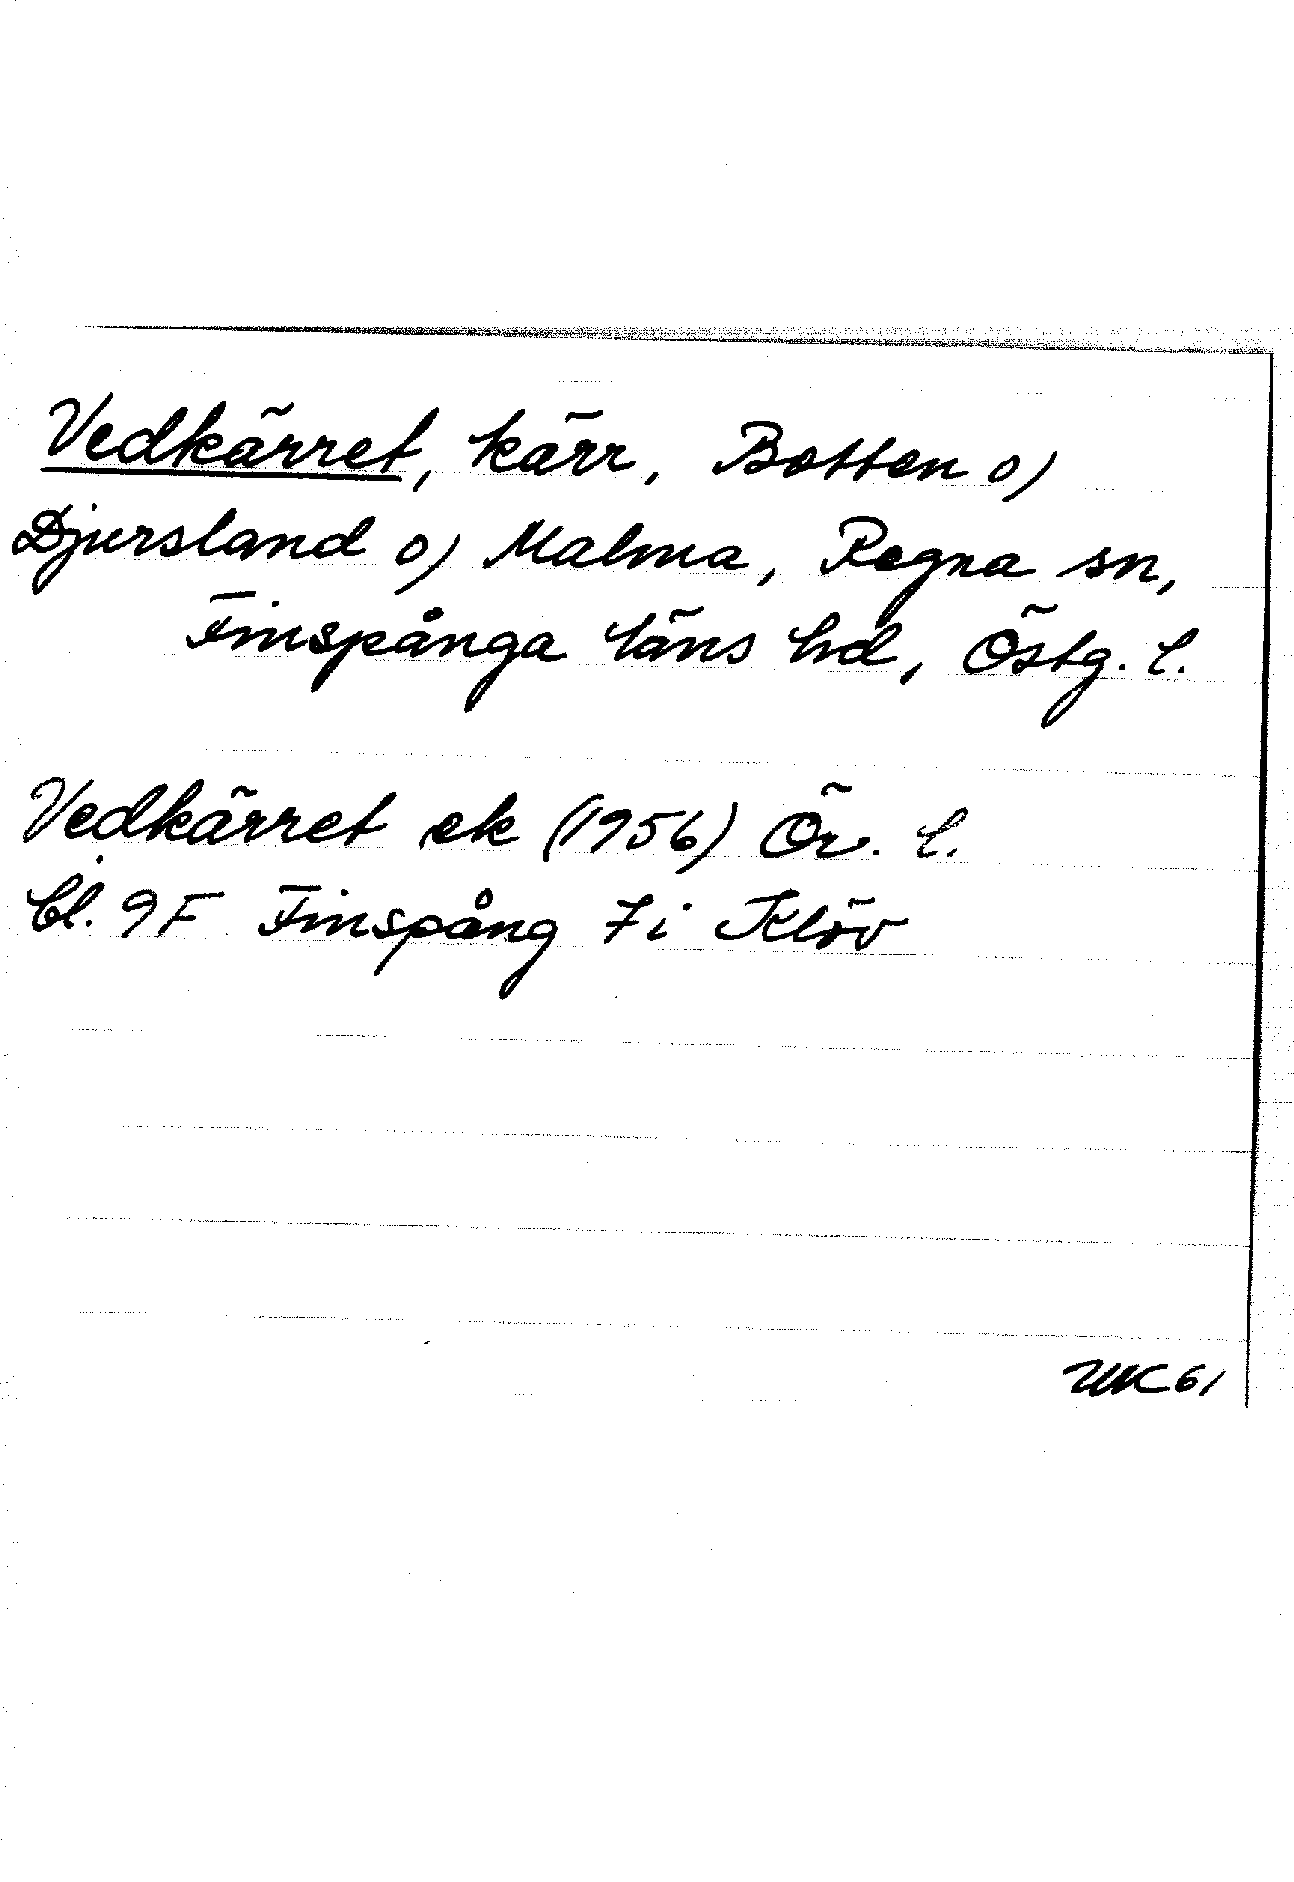 Vedkärret, kärr, Botten o)
Djursland o) Malma, Regna sn,
Finspånga läns hd, Östg. l.
Vedkärret ek (1956) Ör. l.
bl. 9F Finspång 7i Klöv
61